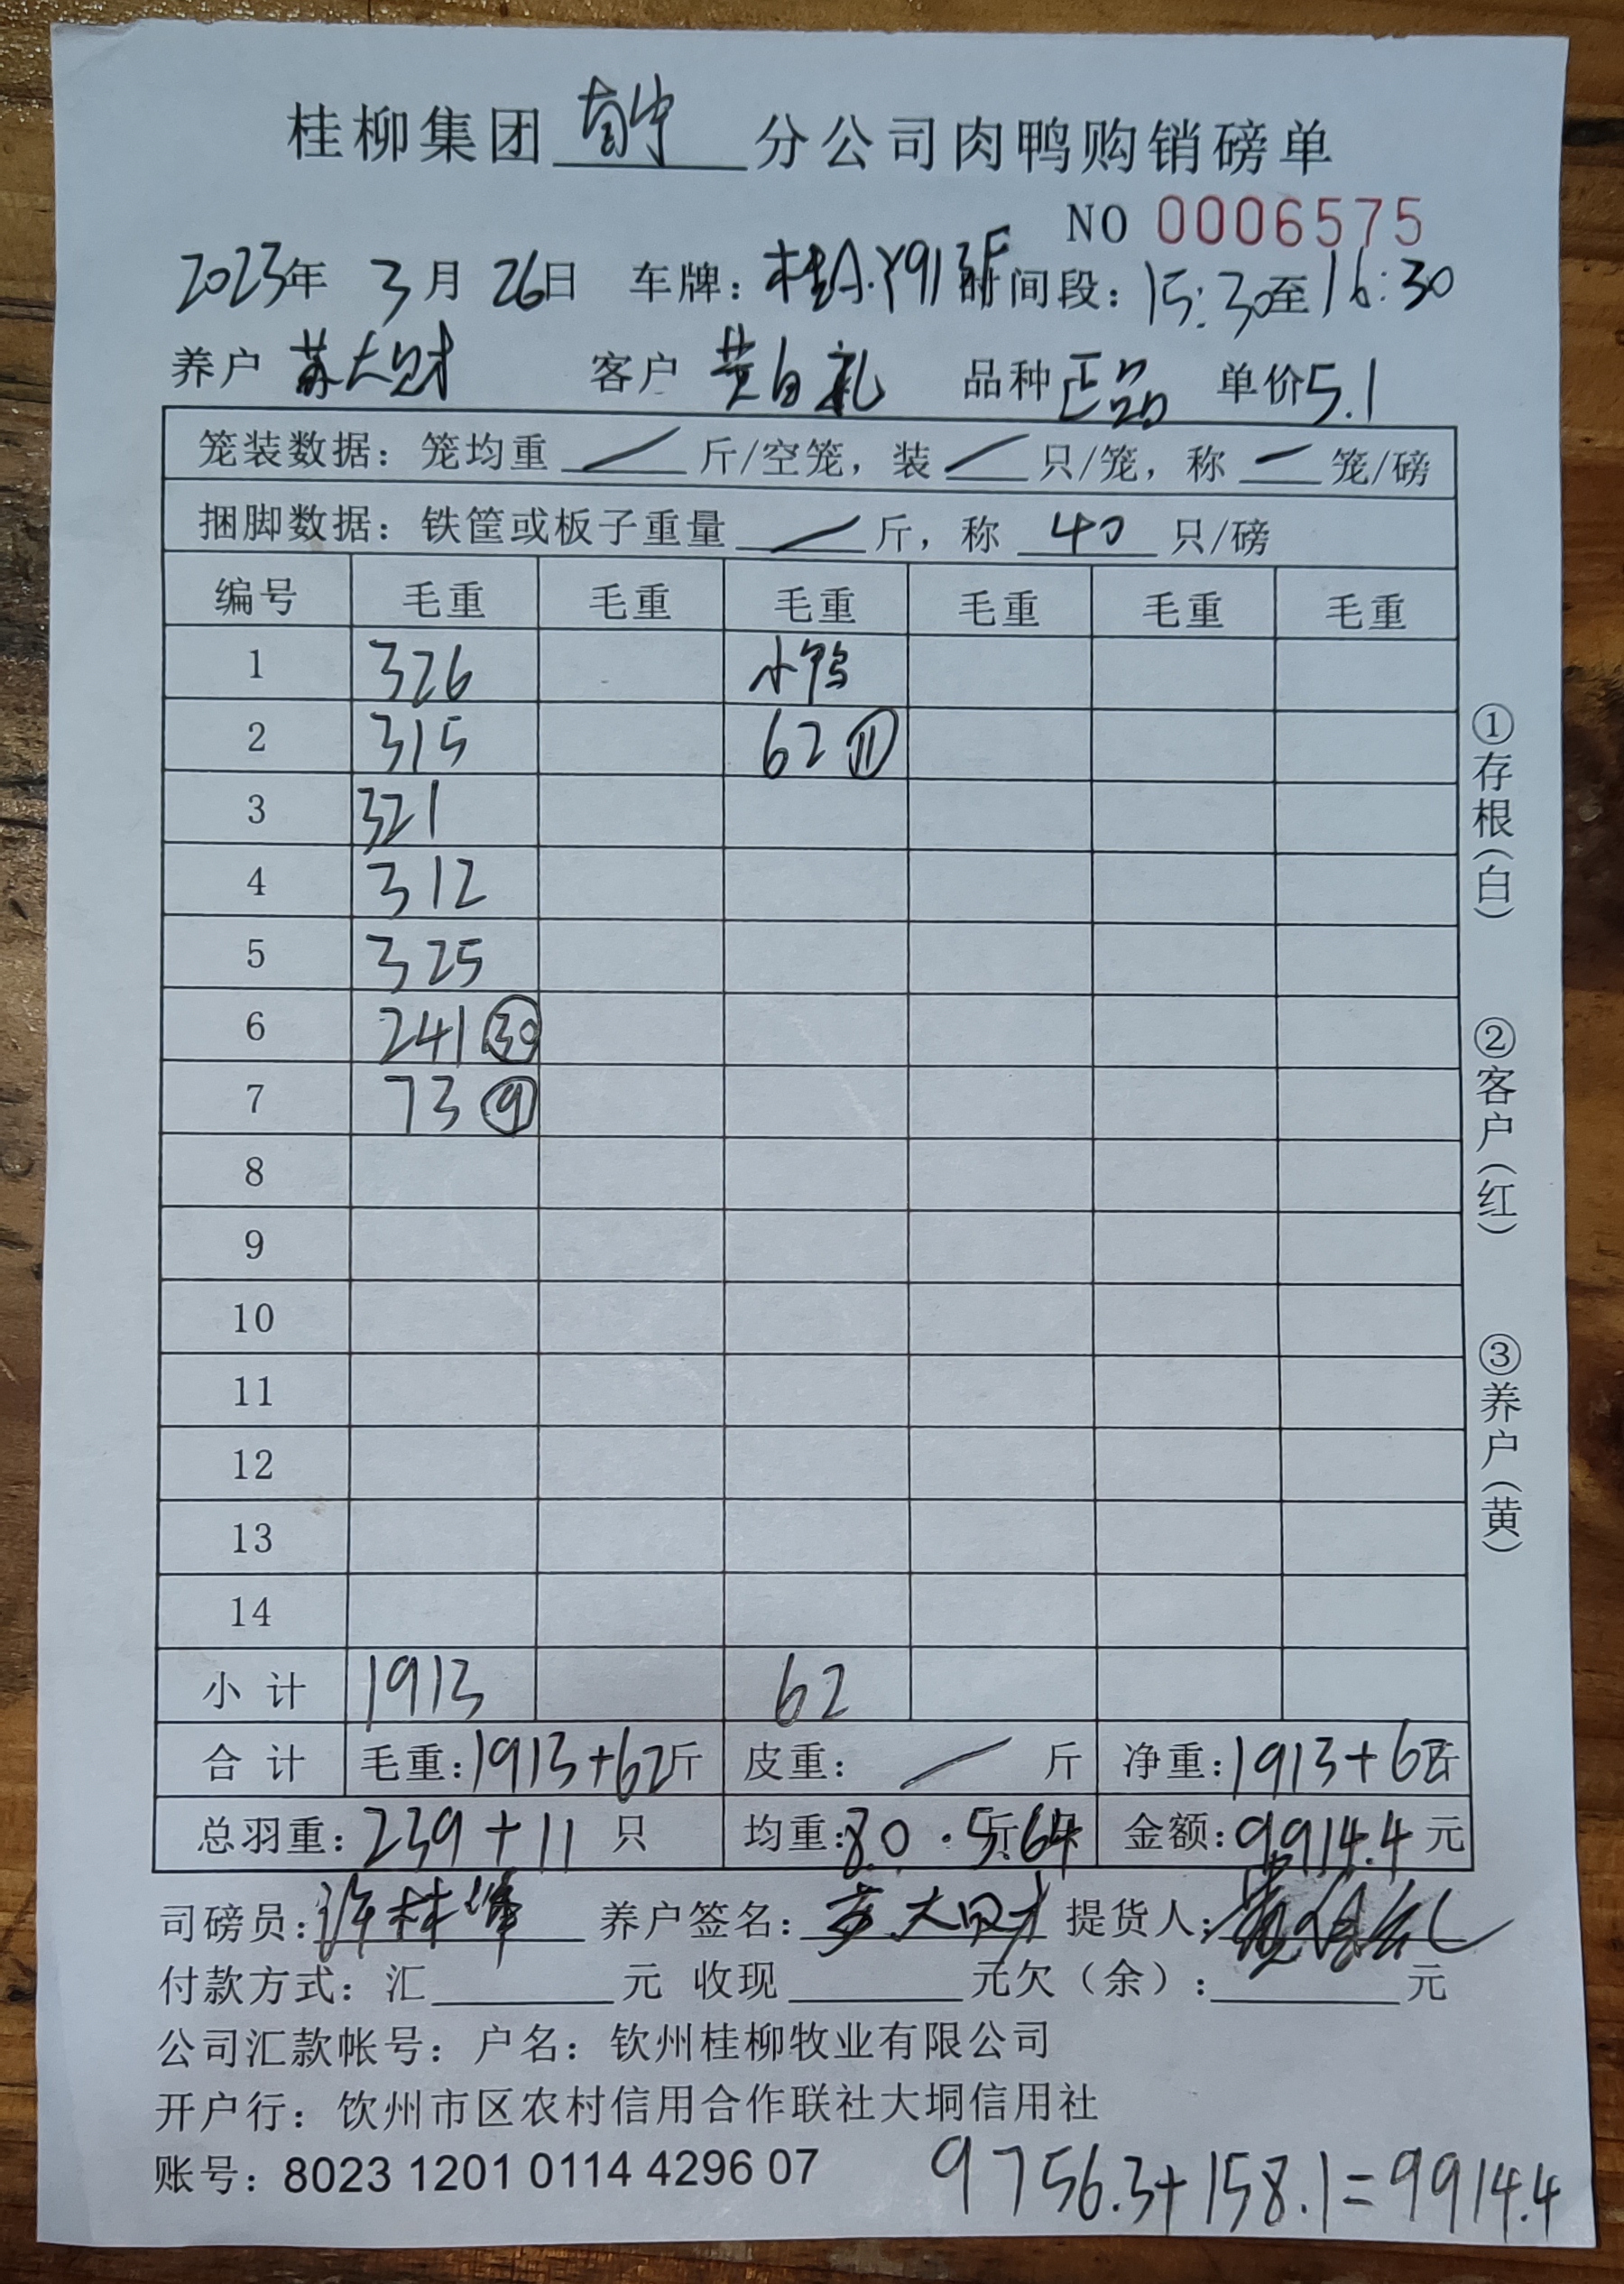 桂柳集团 南宁 分公司肉鸭购销磅单
NO 0006575
2023年 3月 26日 车牌：桂A·Y913F 时间段：15:30至16:30
养户 苏大财 客户 黄白礼 品种 正品 单价5.1
笼装数据：笼均重 / 斤/空笼，装 / 只/笼，称 / 笼/磅
捆脚数据：铁筐或板子重量 / 斤，称 40 只/磅
编号 毛重 毛重 毛重 毛重 毛重 毛重
1 326 小鸭
2 315 62 ⑪
3 321
4 312
5 325
6 241 ㉚
7 73 ⑨
8
9
10
11
12
13
14
小计 1913 62
合计 毛重：1913+62斤 皮重： / 斤 净重：1913+62斤
总羽重：239+11 只 均重：8.0 · 5.64 金额：9914.4 元
司磅员：许林峰 养户签名：苏大财 提货人：
付款方式：汇 元 收现 元欠（余）： 元
公司汇款帐号：户名：钦州桂柳牧业有限公司
开户行：饮州市区农村信用合作联社大垌信用社
账号：8023 1201 0114 4296 07
9756.3+158.1=9914.4
①存根（白）
②客户（红）
③养户（黄）